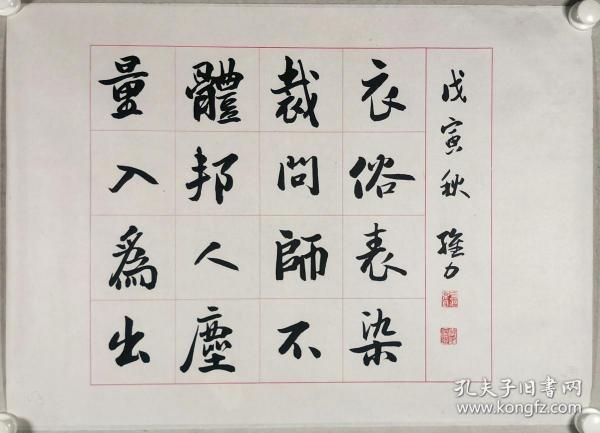 量體裁衣
入邦問俗
爲人師表
出塵不染
戊寅秋 維力
孔夫子旧书网
www.kongfz.com